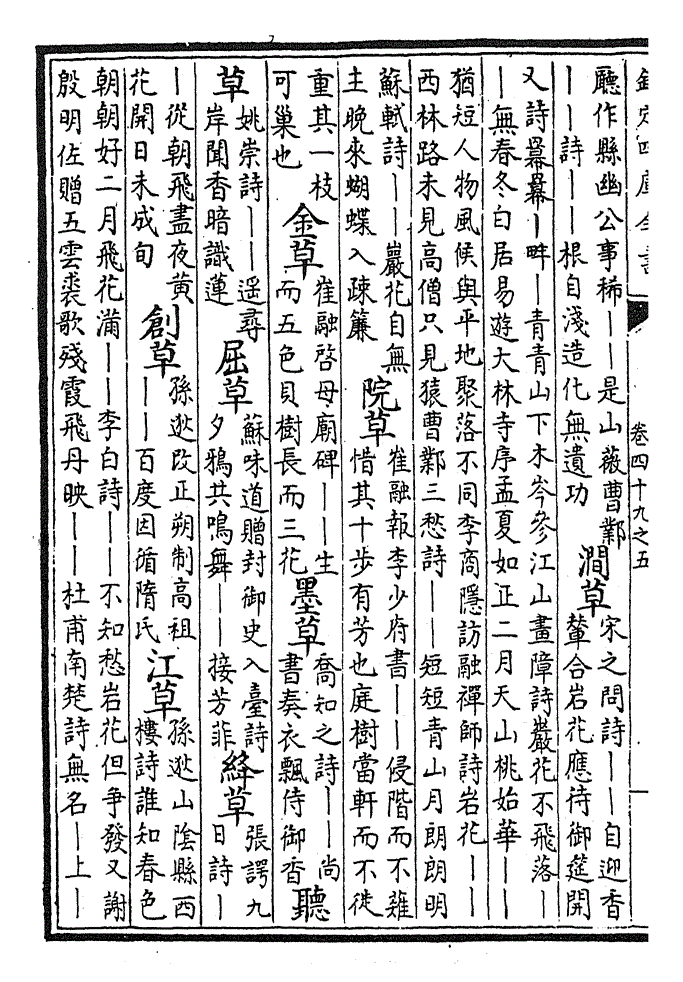 欽定四庫全書
卷四十九之五
一
廳作縣幽公事稀――是山薇曹鄴
――詩――根自淺造化無遺功
澗草
宋之問詩――自迎香
輦合岩花應待御筵開
又詩羃羃―畔―青青山下木岑參江山畫障詩巖花不飛落―
―無春冬白居易遊大林寺序孟夏如正二月天山桃始華――
猶短人物風候與平地聚落不同李商隱訪融禪師詩岩花――
西林路未見高僧只見猿曹鄴三愁詩――短短青山月朗朗明
蘇軾詩――巖花自無
主晚來蝴蝶入疎簾
院草
崔融報李少府書――侵階而不薙
惜其十步有芳也庭樹當軒而不徙
重其一枝
可巢也
金草
崔融啓母廟碑――生
而五色貝樹長而三花
墨草
喬知之詩――尚
書奏衣飄侍御香
聽
草
姚崇詩――遥尋
岸聞香暗識蓮
屈草
蘇味道贈封御史入臺詩
夕鴉共鳴舞――接芳菲
絳草
張諤九
日詩―
―從朝飛盡夜黄
花開日未成旬
創草
孫逖改正朔制高祖
――百度因循隋氏
江草
孫逖山陰縣西
樓詩誰知春色
朝朝好二月飛花滿――李白詩――不知愁岩花但爭發又謝
殷明佐贈五雲裘歌殘霞飛丹映――杜甫南楚詩無名―上―